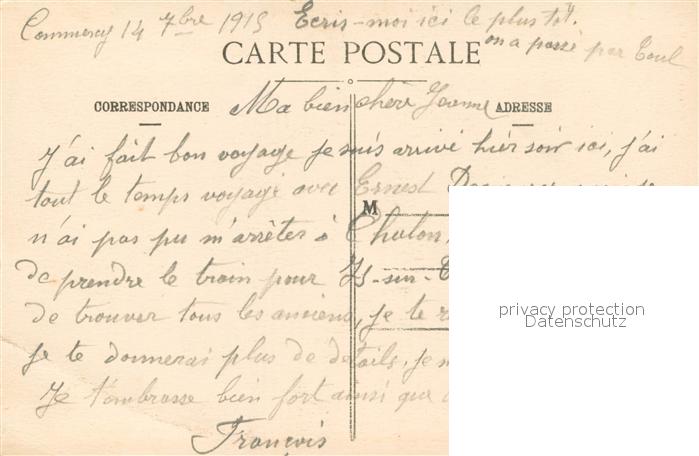 Commercy 14 7bre 1915 Ecris-moi ici le plus tôt.
on a passé par Toul
CARTE POSTALE
CORRESPONDANCE
ADRESSE
Ma bien chère Jeanne
J'ai fait bon voyage je suis arrivé hier soir ici, j'ai
tout le temps voyagé avec Ernest
M
n'ai pas pu m'arrêter à Chalon,
de prendre le train pour Is-sur-T
de trouver tous les anciens, je te
je te donnerai plus de détails. je
Je t'embrasse bien fort ainsi que
François
privacy protection
Datenschutz